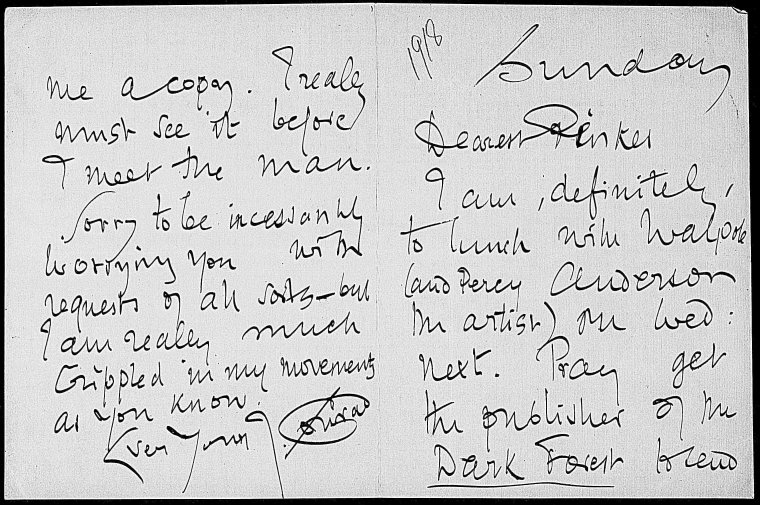 1918
Sunday
Dearest Pinker
I am, definitely,
to lunch with Walpole
(and Percy Anderson
the artist) on Wed:
next. Pray get
the publisher of the
Dark Forest to send
me a copy. I really
must see it before
I meet the man.
Sorry to be incessantly
worrying you with
requests of all sorts – but
I am really much
crippled in my movements
as you know.
Ever Yours J. Conrad